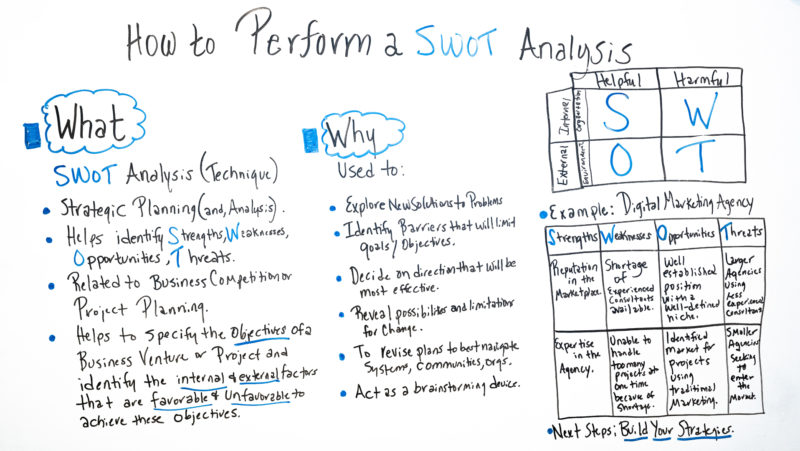 How to Perform a SWOT Analysis
What
SWOT Analysis (Technique)
• Strategic Planning (and, Analysis).
• Helps identify Strengths, Weaknesses,
Opportunities, Threats.
• Related to Business Competition or
Project Planning.
• Helps to specify the Objectives of a
Business Venture or Project and
identify the internal & external factors
that are favorable & Unfavorable to
achieve these Objectives.
Why
Used to:
• Explore New Solutions to Problems
• Identify Barriers that will limit
goals/Objectives.
• Decide on direction that will be
most effective.
• Reveal possibilities and limitations
for Change.
• To revise plans to best navigate
Systems, Communities, orgs.
• Act as a brainstorming device.
Helpful Harmful
Internal
S W
External
O T
• Example: Digital Marketing Agency
Strengths Weaknesses Opportunities Threats
Reputation
in the
Marketplace.
Shortage
of
Experienced
Consultants
available.
Well
established
position
with a
well-defined
niche.
Larger
Agencies
Using
Less
experienced
Consultants
Expertise
in the
Agency.
Unable to
handle
too many
projects at
one time
because of
Shortage.
Identified
market for
Projects
Using
traditional
Marketing.
Smaller
Agencies
Seeking
to
enter
the
• Next Steps: Build Your Strategies.